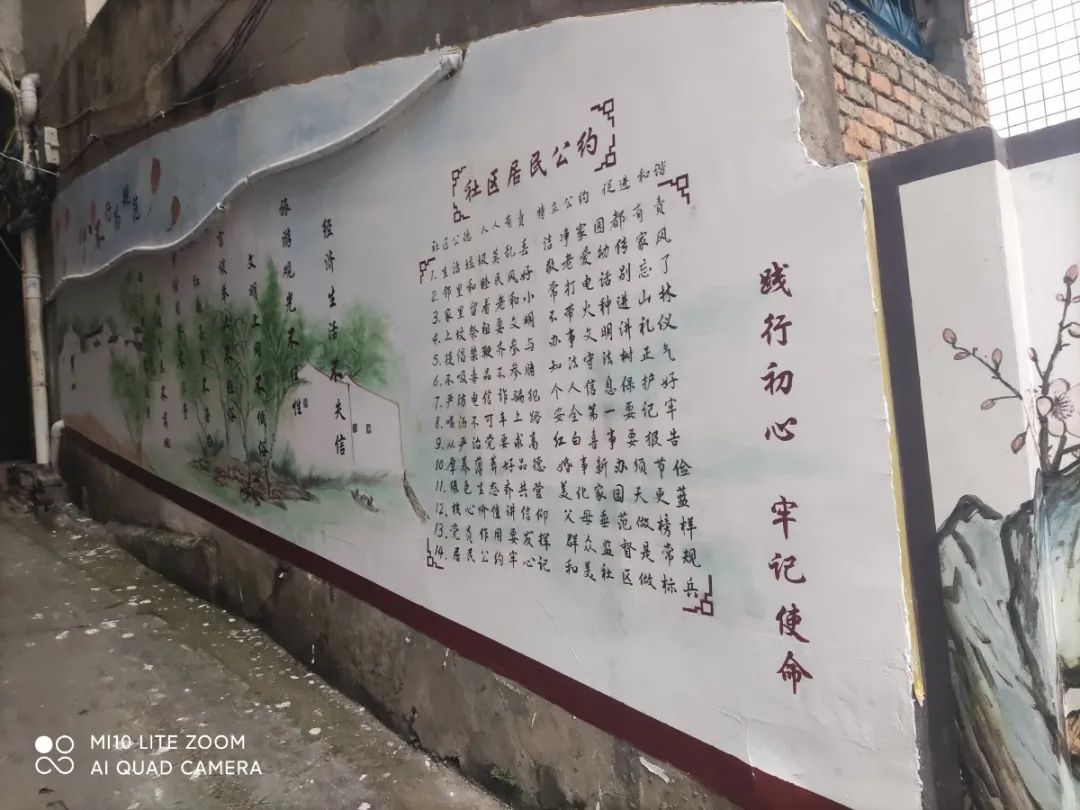 八不行为规范
文明上网不低俗
旅游观光不任性
经济生活不失信
社区居民公约
社区公德 人人有责 特立公约 促进和谐
1. 生活垃圾莫乱丢 洁净家园都有责
2. 邻里和睦民风好 敬老爱幼传家风
3. 家里留着老和小 常打电话别忘了
4. 上坟祭祖要文明 不带火种进山林
5. 提倡禁鞭齐参与 办事文明讲礼仪
6. 不吸毒品不参赌 知法守法树正气
7. 严防电信诈骗犯 个人信息保护好
8. 喝酒不可车上路 安全第一要记牢
9. 从严治党要求高 红白喜事要报告
10. 厚养薄葬好品德 婚事新办须节俭
11. 绿色生态齐共管 美化家园天更蓝
12. 核心价值讲信仰 父母垂范做榜样
13. 党员作用要发挥 群众监督是常规
14. 居民公约牢心记 和美社区做标兵
践行初心 牢记使命
MI10 LITE ZOOM
AI QUAD CAMERA